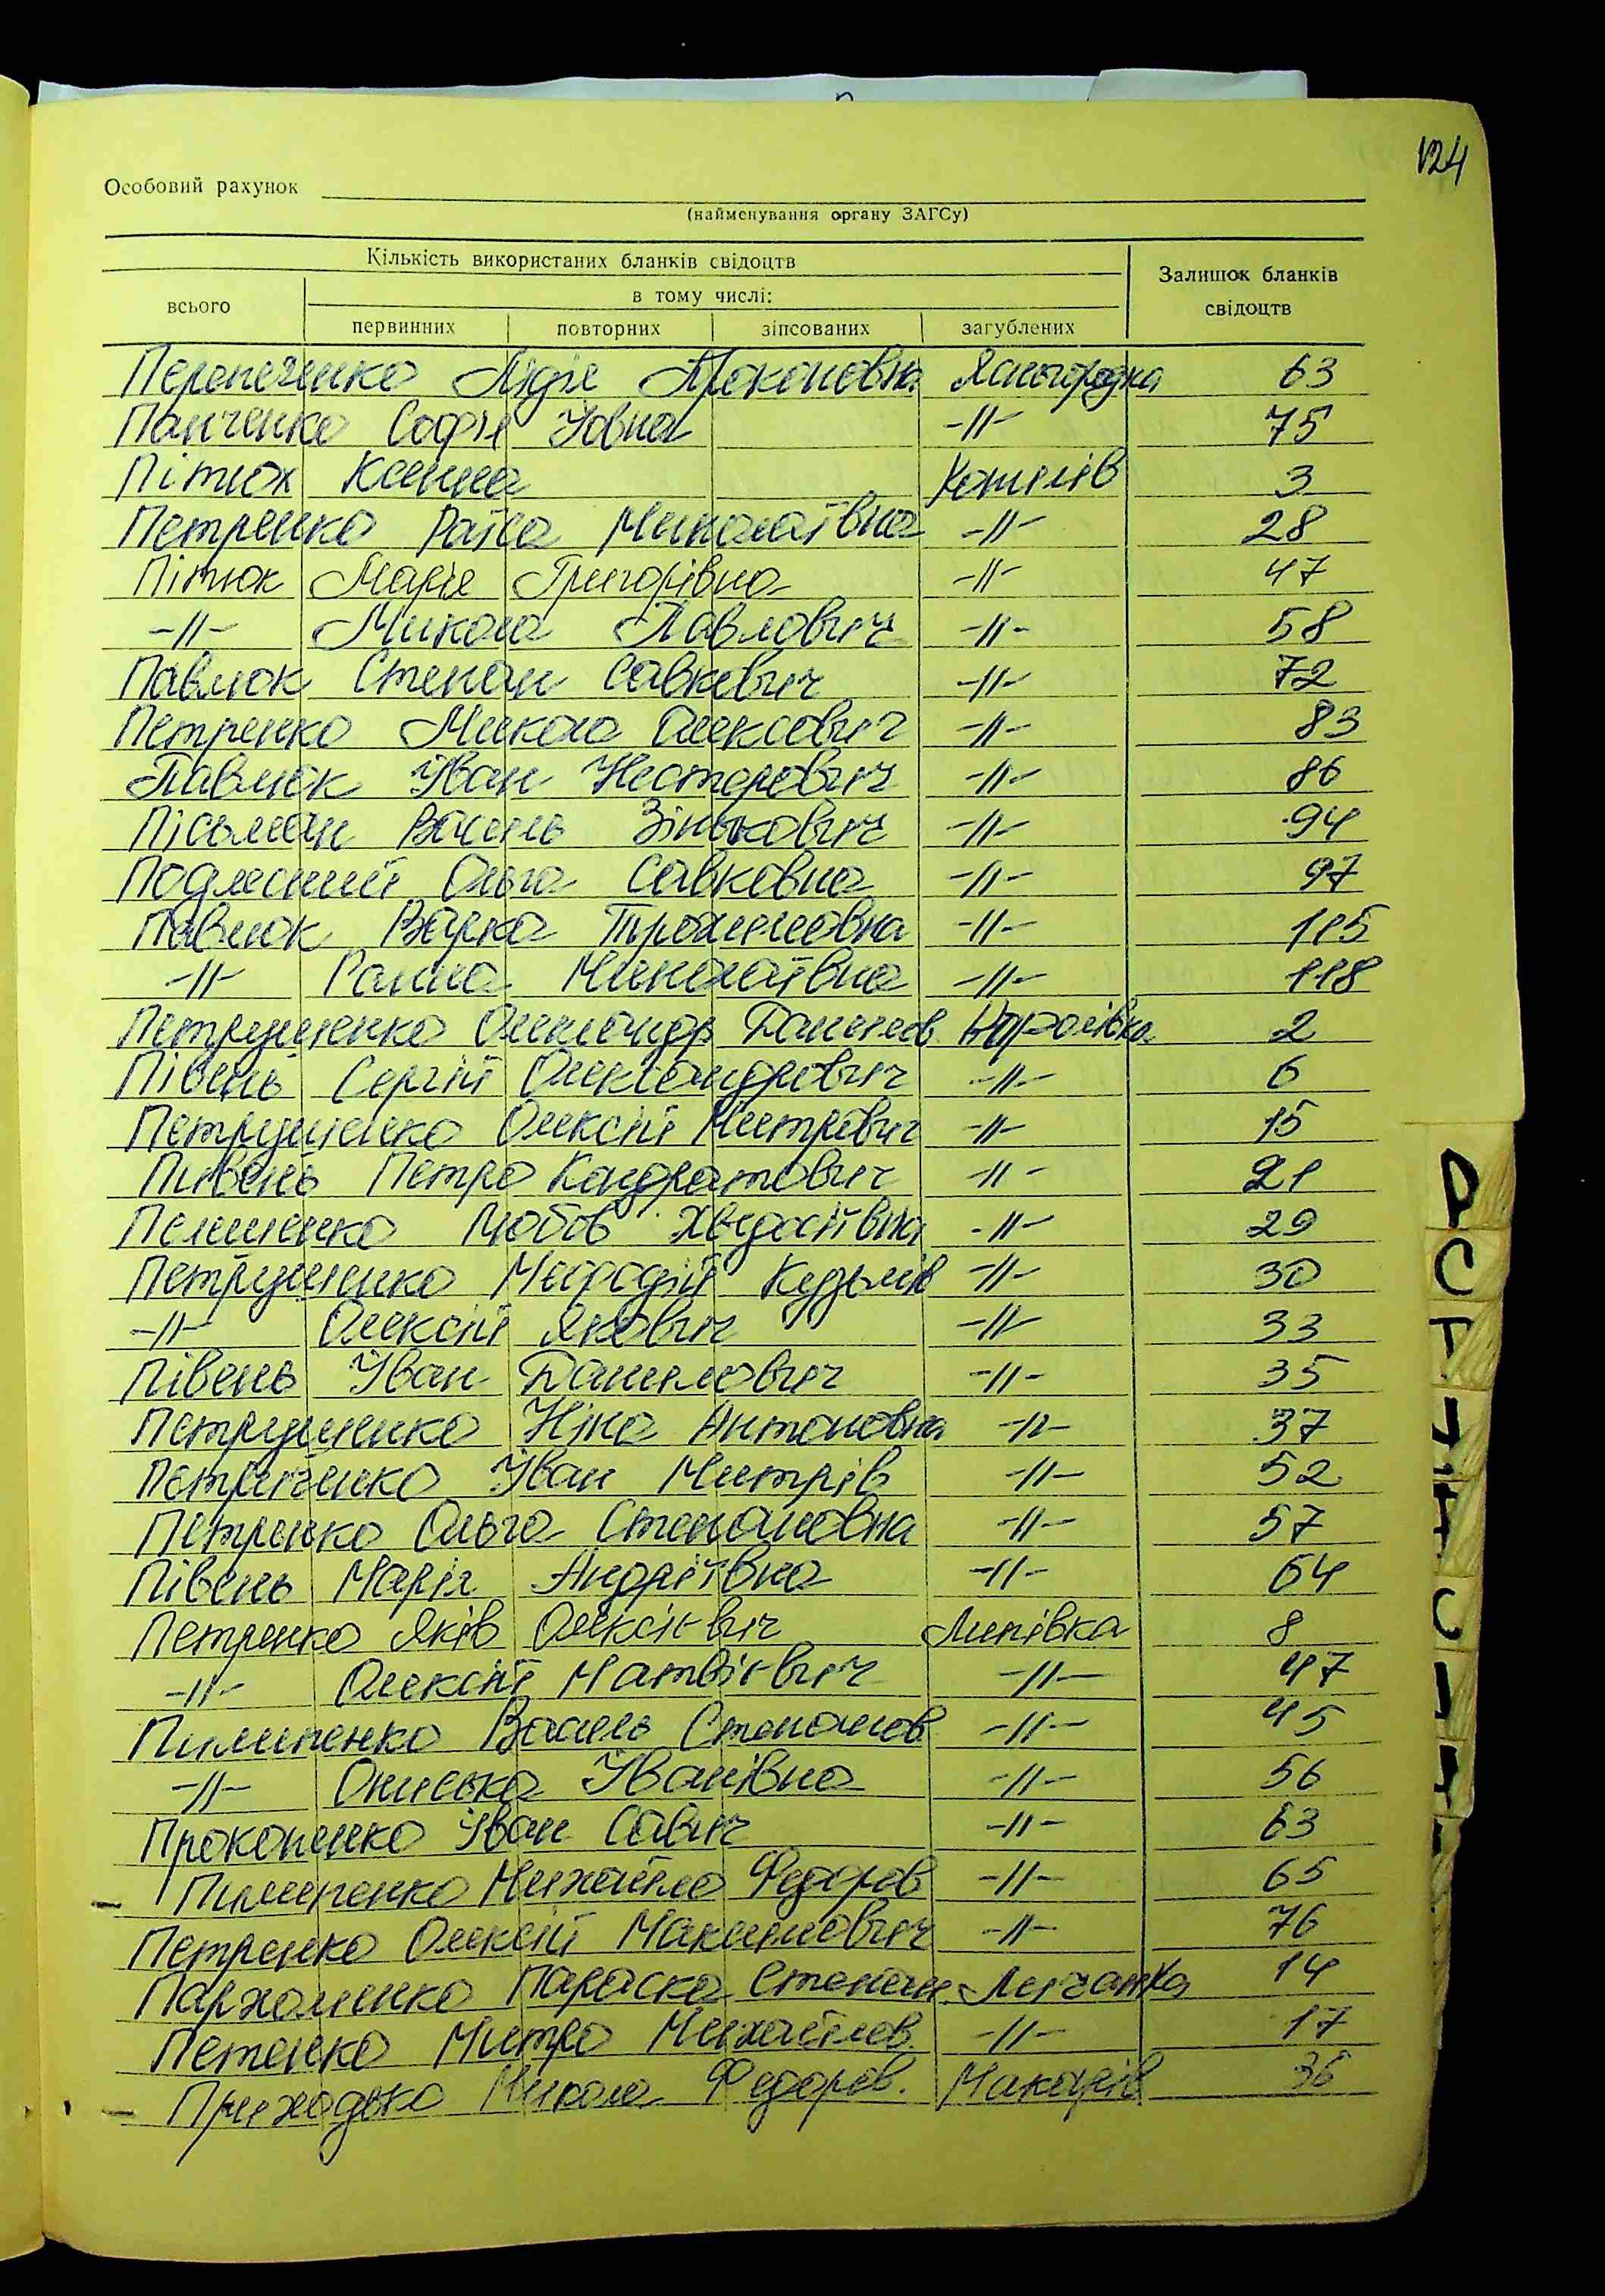 124
Особовий рахунок
(найменування органу ЗАГСу)
Кількість використаних бланків свідоцтв
Залишок бланків свідоцтв
всього
в тому числі:
первинних повторних зіпсованих загублених
Перепеченко Лідія Прокоповна Ясногородка 63
Панченко Софія Йовна -//- 75
Пітюх Ксенна 3
Петренко Раїса Миколаївна -//- 28
Пітюк Марія Григорівна -//- 47
-//- Микола Павлович -//- 58
Павлюк Степан Савкович -//- 72
Петренко Микола Олексович -//- 83
Павлюк Іван Нестерович -//- 86
Пісьман Василь Зінькович -//- 94
Подлесний Ольга Савковна -//- 97
Павлюк Варка Трохимовна -//- 115
-//- Ганна Миколаївна -//- 118
Петрушенко Олександр Данилов. 2
Півень Сергій Олександрович -//- 6
Петрушенко Олексій Митрович -//- 15
Пивень Петро Кондратович -//- 21
Любов Хведосіївна -//- 29
Петрушенко Мефодій Кузьмів -//- 30
-//- Олексій Якович -//- 33
Півень Іван Данилович -//- 35
Петрушенко Ніна Антоновна -//- 37
Петриченко Іван Митрів -//- 52
Петренко Ольга Степановна -//- 57
Півень Марія Андріївна -//- 64
Петренко Яків Олексі-вич Липівка 8
-//- Олексій Матві-вич -//- 47
Пилипенко Василь Степанов. -//- 45
-//- Ониська Іванівна -//- 56
Прокопенко Іван Савич -//- 63
Пилипенко Михайло Федоров -//- 65
Петренко Олексій Макимович -//- 76
Пархоменко Параска Степан. 14
Петенко Митро Михайлов. -//- 17
Приходько Микола Федоров. Макарів 36
Р
С
Т